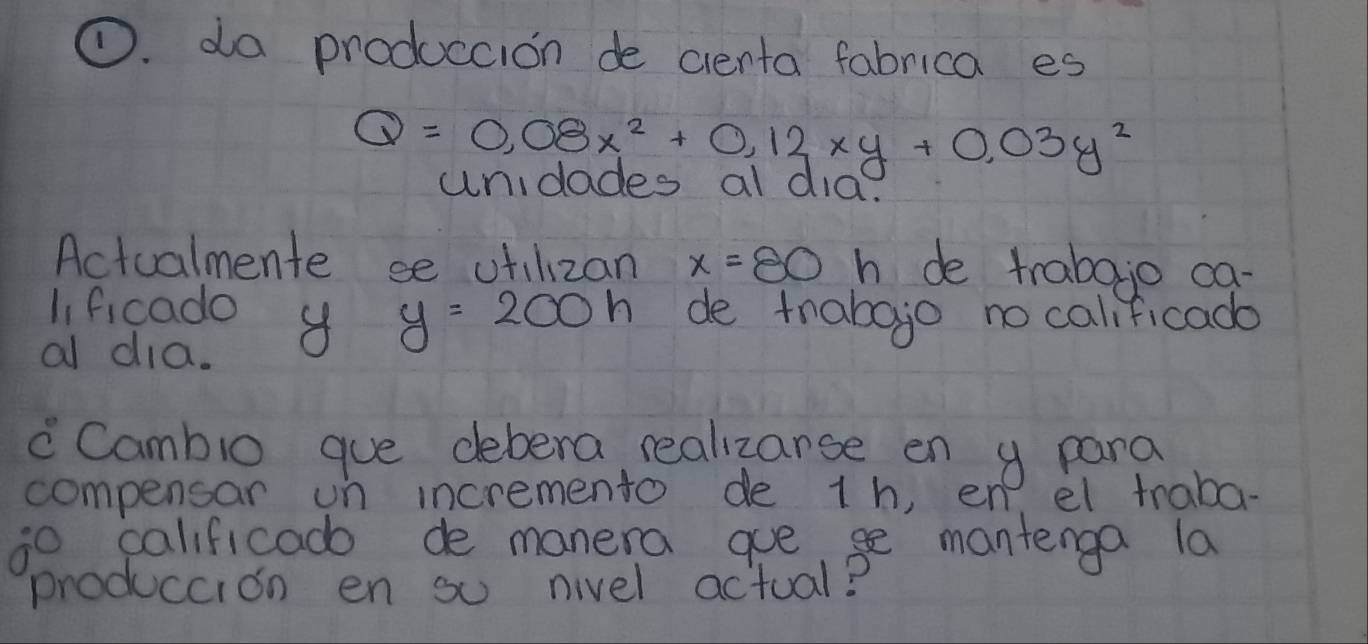 ①. La producción de cierta fabrica es
Q = 0,08x² + 0,12xy + 0,03y²
unidades al dia.
Actualmente se utilizan x=80 h de trabajo ca-
lificado y y=200h de trabajo no calificado
al dia.
¿Cambio que debera realizarse en y para
compensar un incremento de 1h, en el traba-
jo calificado de manera que se mantenga la
producción en su nivel actual?